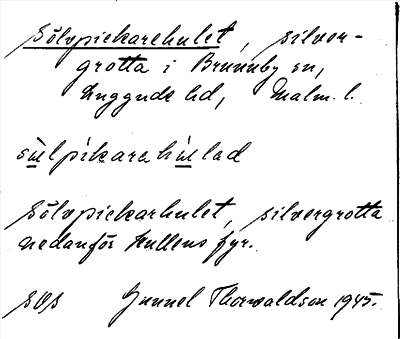 Sölvpickarehulet, silver-
grotta i Brunnby sn,
Luggude hd, Malm. l.
sülpíkarahúlad
Sölvpickarhulet, silvergrotta
nedanför Kullens fyr.
Gunnel Thorwaldson 1945.